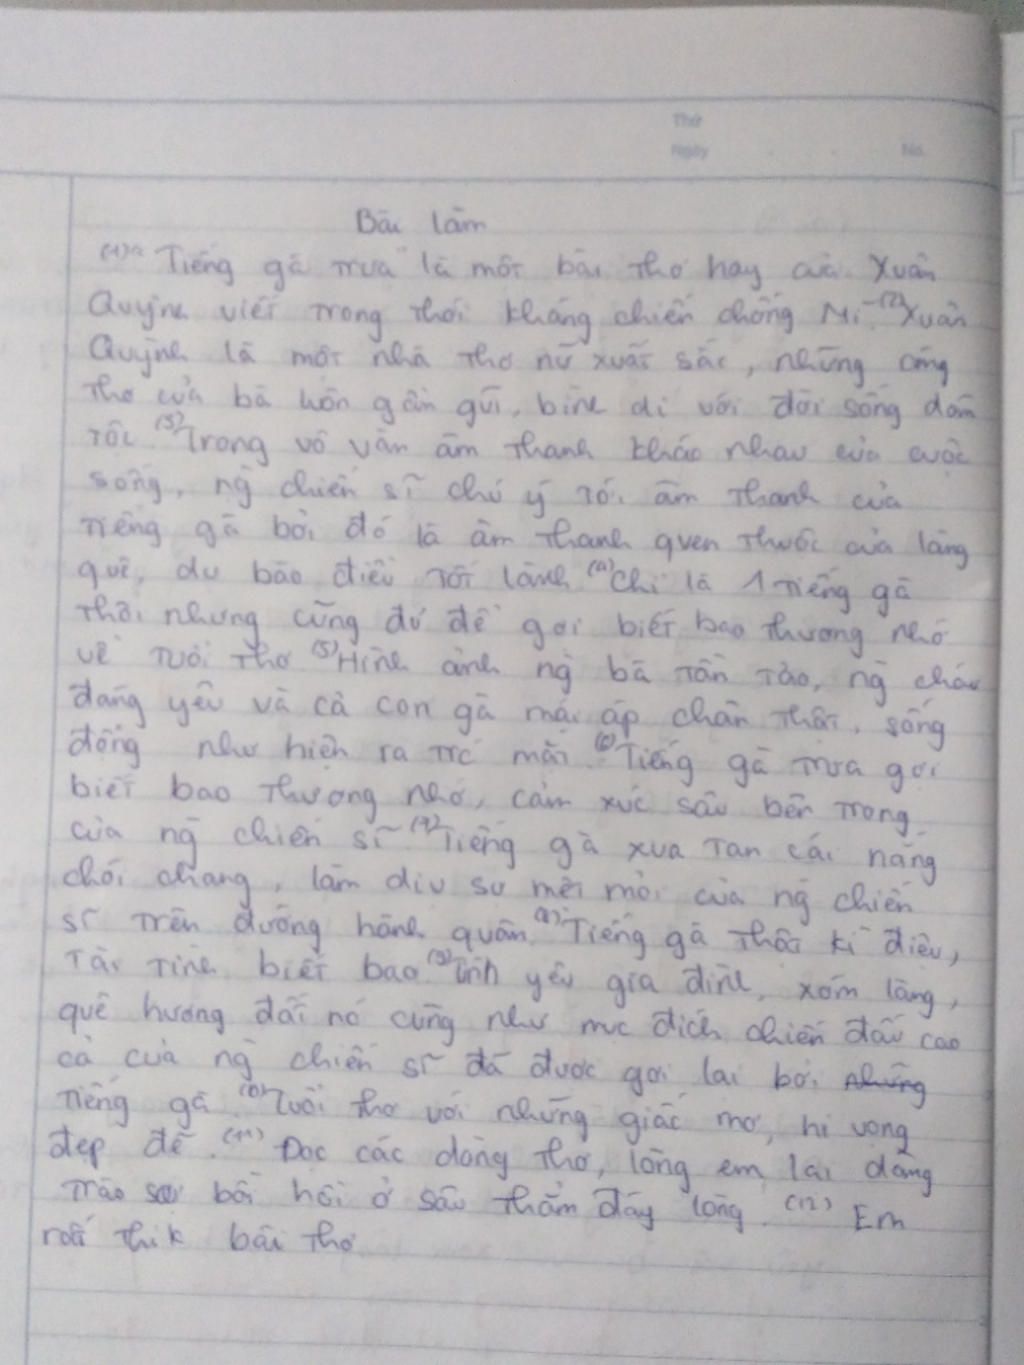 Thứ
Ngày
No.
Bài làm
(1) "Tiếng gà trưa" là một bài thơ hay của Xuân
Quỳnh viết trong thời kháng chiến chống Mĩ. (2) Xuân
Quỳnh là một nhà thơ nữ xuất sắc, những
thơ của bà luôn gần gũi, bình dị với đời sống dân
tộc. (3) Trong vô vàn âm thanh khác nhau của cuộc
sống, ng chiến sĩ chú ý tới âm thanh của
tiếng gà bởi đó là âm thanh quen thuộc của làng
quê, dự báo điều tốt lành. (4) Chỉ là 1 tiếng gà
thôi nhưng cũng đủ để gợi biết bao thương nhớ
về tuổi thơ. (5) Hình ảnh ng bà tần tảo, ng cháu
đáng yêu và cả con gà mái ấp chân thật, sống
động như hiện ra trc mắt. (6) Tiếng gà trưa gợi
biết bao thương nhớ, cảm xúc sâu bên trong
của ng chiến sĩ. (7) Tiếng gà xua tan cái nắng
chói chang, làm dịu sự mệt mỏi của ng chiến
sĩ trên đường hành quân. (8) Tiếng gà thật kì diệu,
tài tình biết bao. (9) Tình yêu gia đình, xóm làng,
quê hương đất nc cũng như mục đích chiến đấu cao
cả của ng chiến sĩ đã được gợi lại bởi những
tiếng gà. (10) Tuổi thơ với những giấc mơ, hi vọng
đẹp đẽ. (11) Đọc các dòng thơ, lòng em lại dâng
trào sự bồi hồi ở sâu thẳm đáy lòng. (12) Em
rất thik bài thơ